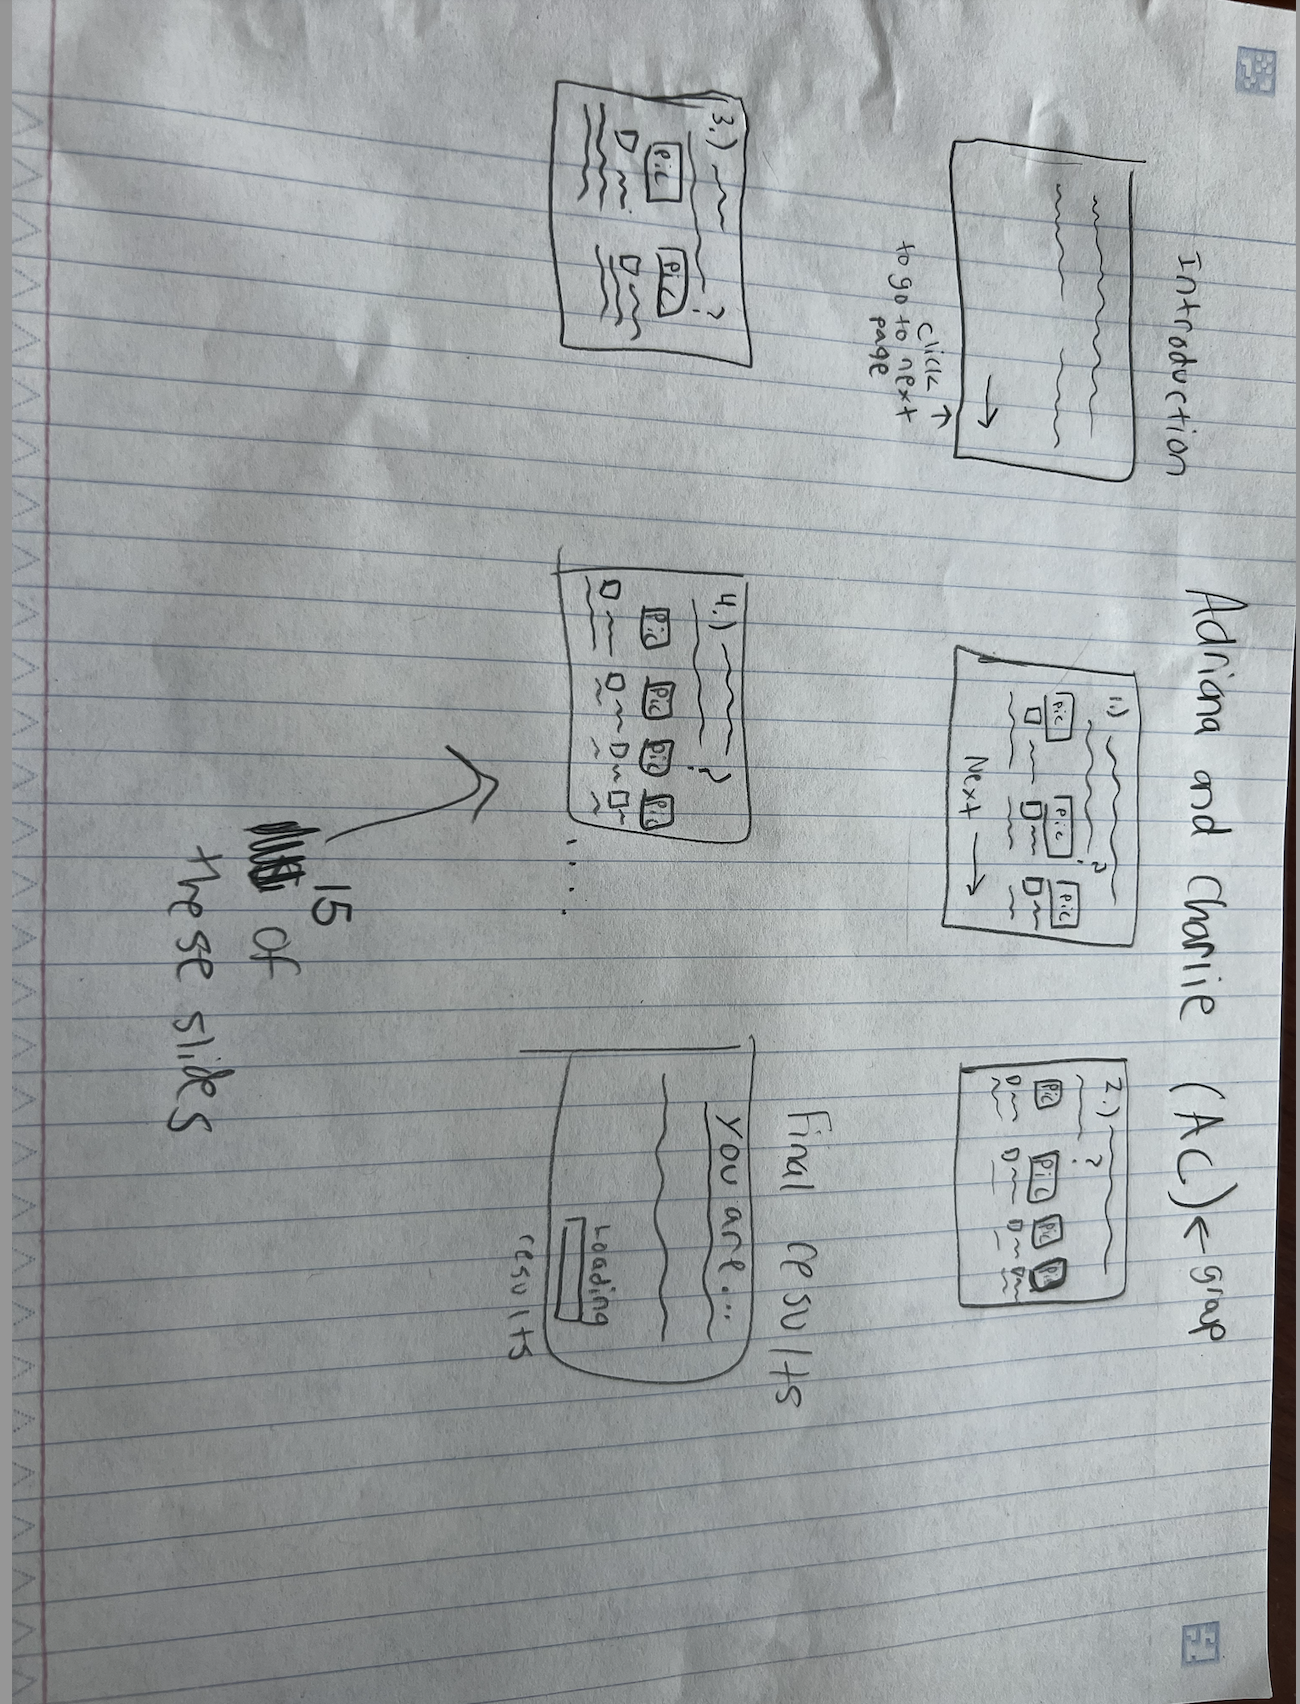 Adriana and Charlie (AC) ← group
Introduction
click ↑
to go to next
page
1.)
?
Pic Pic Pic
Next →
2.)
?
Pic Pic Pic Pic
3.)
?
Pic Pic
4.)
?
Pic Pic Pic Pic
...
15
of
these slides
Final results
You are...
Loading
results